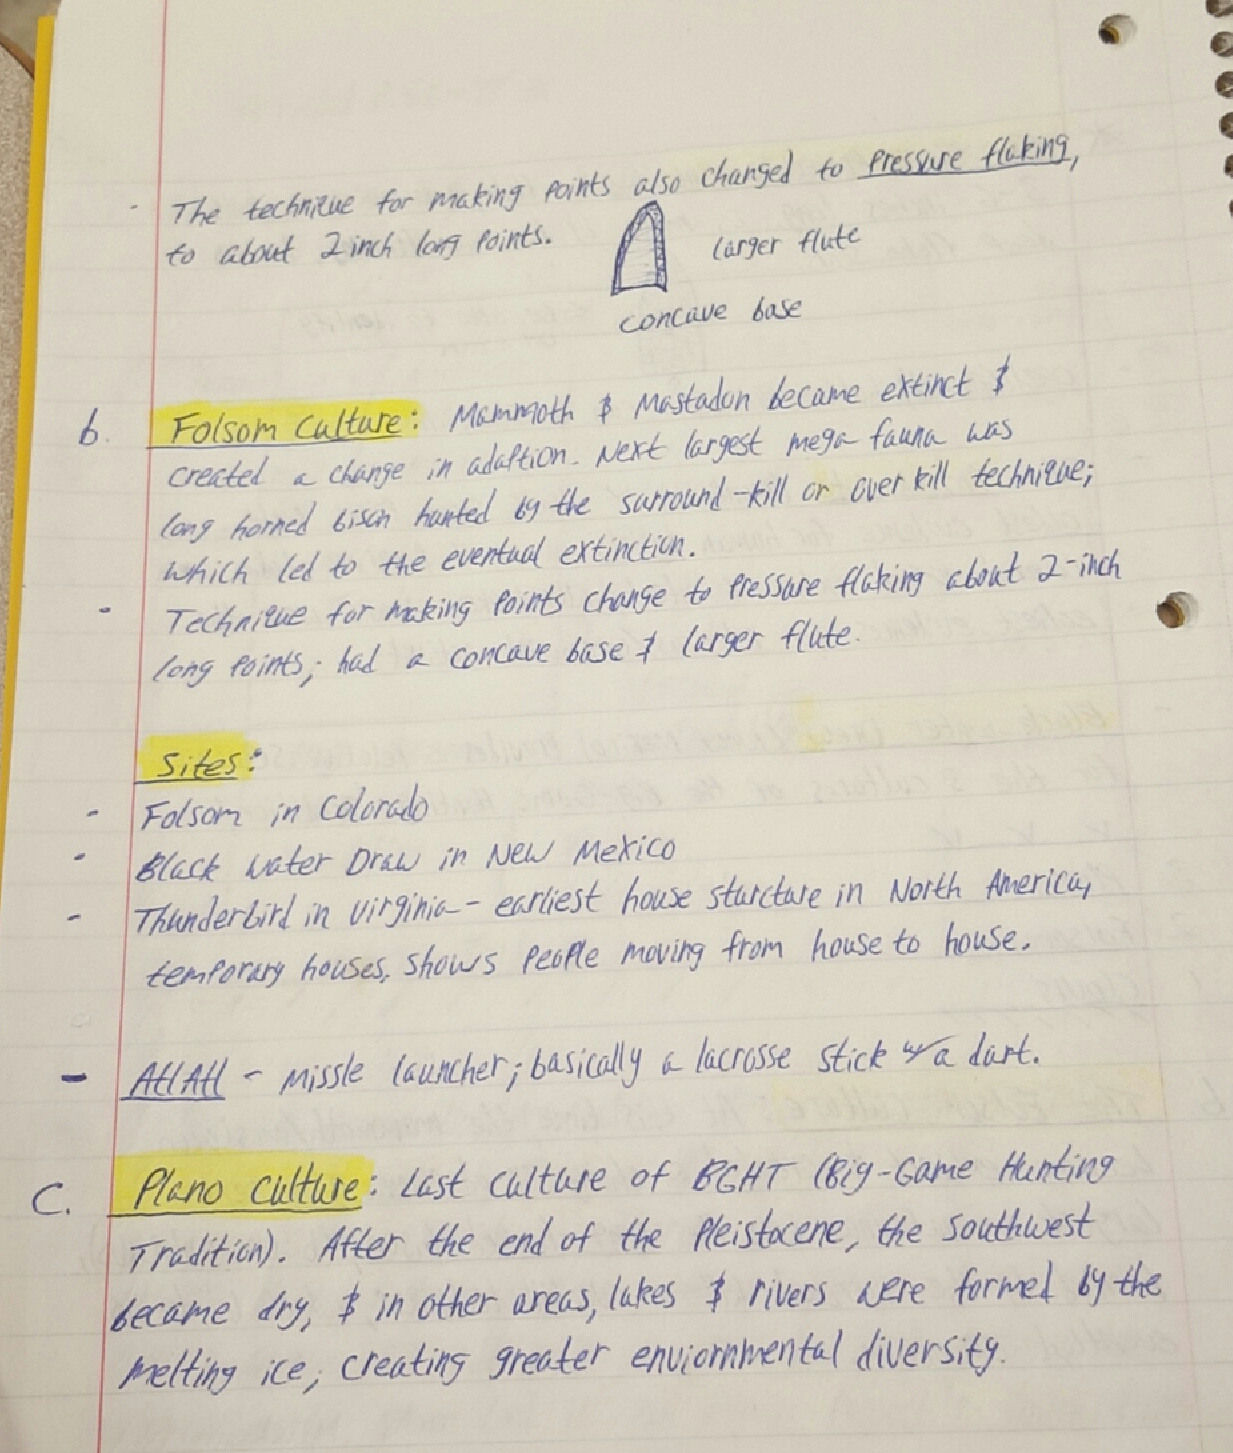 - The technique for making points also changed to pressure flaking,
to about 2 inch long points.
larger flute
concave base
b. Folsom Culture: Mammoth & Mastadon became extinct &
created a change in adaption. Next largest mega fauna was
long horned bison hunted by the surround-kill or over kill technique;
which led to the eventual extinction.
- Technique for making points change to pressure flaking about 2-inch
long points; had a concave base & larger flute.
Sites:
- Folsom in Colorado
- Black Water Draw in New Mexico
- Thunderbird in Virginia - earliest house sturcture in North America,
temporary houses, shows people moving from house to house.
- Atl Atl - Missle launcher; basically a lacrosse stick w/a dart.
C. Plano Culture: Last culture of BGHT (Big-Game Hunting
Tradition). After the end of the Pleistocene, the southwest
became dry, & in other areas, lakes & rivers were formed by the
melting ice; creating greater enviornmental diversity.